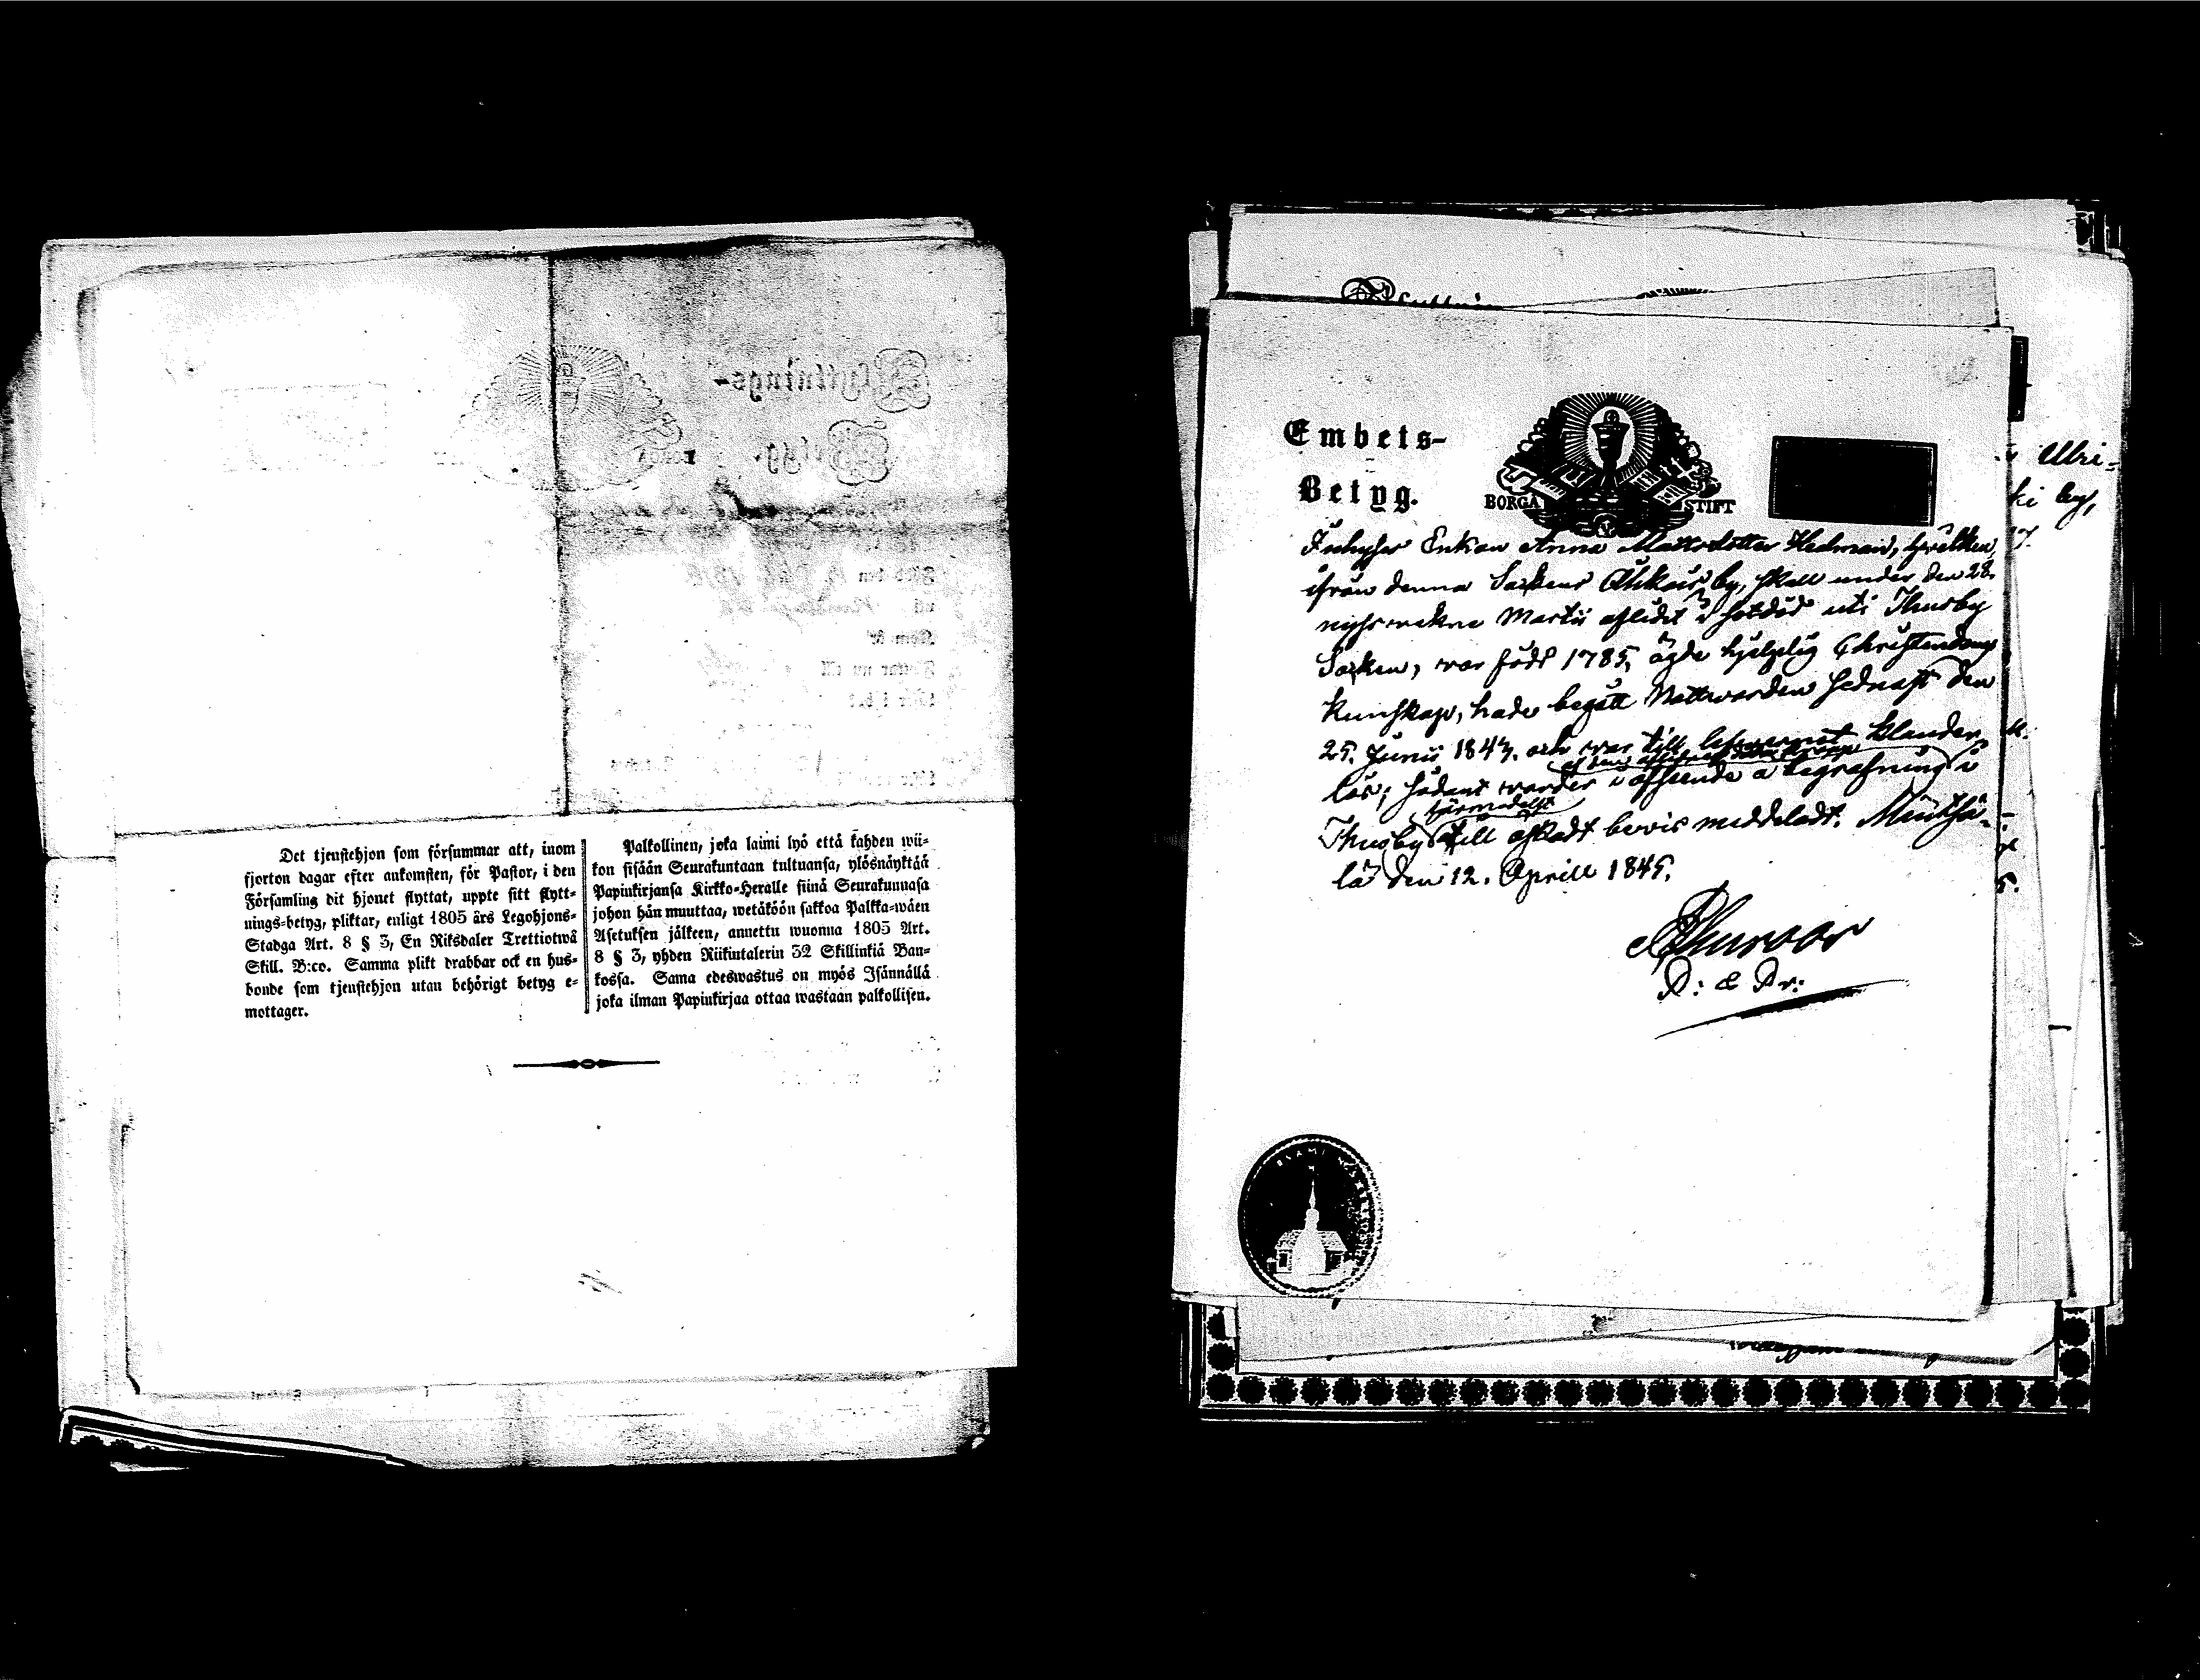 Flyttnings-
Betyg.
BORGÅ
Det tjenstehjon som försummar att, inom
fjorton dagar efter ankomsten, för Pastor, i den
Församling dit hjonet flyttat, uppte sitt flytt-
nings-betyg, pliktar, enligt 1805 års Legohjons-
Stadga Art. 8 § 3, En Riksdaler Trettiotwå
Skill. B:co. Samma plikt drabbar ock en hus-
bonde som tjenstehjon utan behörigt betyg e-
mottager.
Palkollinen, joka laimi lyö että kahden wii-
kon sisään Seurakuntaan tultuansa, ylösnäyttää
Papinkirjansa Kirkko-Heralle siinä Seurakunnasa
johon hän muuttaa, wetäköön sakkoa Palkka-wäen
Asetuksen jälkeen, annettu wuonna 1805 Art.
8 § 3, yhden Riikintalerin 32 Skillinkiä Ban-
kossa. Sama edeswastus on myös Isännällä
joka ilman Papinkirjaa ottaa wastaan palkollisen.
Embets-
Betyg.
BORGÅ STIFT
Inhyses Enkan Anna Mattsdotter Hedman, hvilken
ifrån denna Sockens by, skall under den 28.
Martii aflidit i sotdöd uti Thusby
Socken, var född 1785, ägde hjelplig Christendoms
kunskap, hade begått Nattvarden sednast den
25. Junii 1844. och var till lefvernet klander
lös; sådant varder i afseende å begrafning i
härmedelst
Thusby till äskadt bevis meddeladt. Mäntsä-
lä den 12. Aprill 1845.